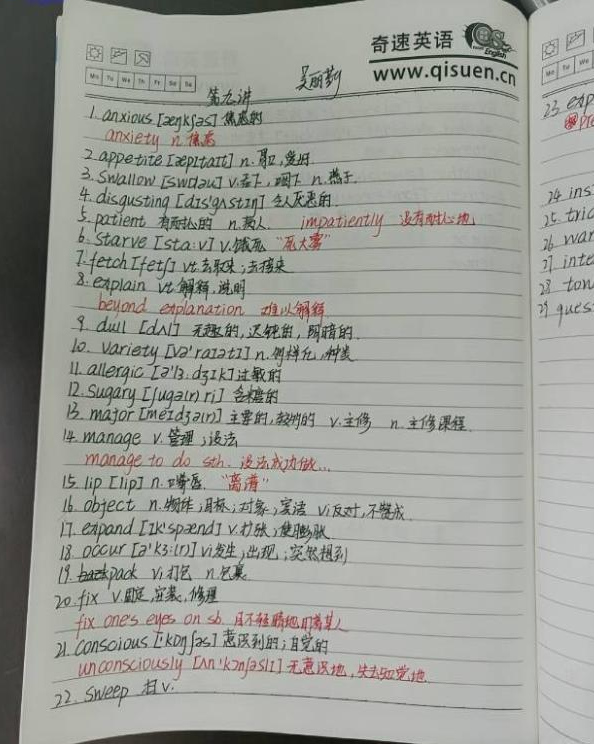 奇速英语
English
www.qisuen.cn
Mo Tu We Th Fr Sa Su
第九讲
1. anxious [æŋkʃəs] 焦虑的
anxiety n. 焦虑
2. appetite [æpɪtaɪt] n. 胃口,爱好
3. Swallow [swɒləu] v.吞下,咽下 n.燕子.
4. disgusting [dɪs'gʌstɪŋ] 令人厌恶的.
5. patient 有耐心的 n.病人. impatiently 没有耐心地
6. starve [sta:v] v.饿死 "死大雾"
7. fetch [fetʃ] vt.去取来;去接来
8. explain vt.解释,说明
beyond explanation 难以解释
9. dull [dʌl] 无趣的,迟钝的,阴暗的.
10. variety [və'raɪətɪ] n.多样化,种类
11. allergic [ə'lɜ.dʒɪk] 过敏的
12. sugary [ʃugə(r) ri] 含糖的
13. major [meɪdʒə(r)] 主要的,较大的 v.主修 n.主修课程.
14. manage v.管理;设法
manage to do sth. 设法成功做...
15. lip [lɪp] n.嘴唇 "离谱"
16. object n.物体;目标;对象;宾语 vi反对,不赞成.
17. expand [ɪk'spænd] v.扩张;使膨胀
18. occur [ə'kɜ:(r)] vi发生;出现;突然想到
19. pack vi.打包 n.包裹
20. fix v.固定,安装,修理
fix one's eyes on sb 目不转睛地盯着某人
21. conscious ['kɒnʃəs] 意识到的;自觉的
unconsciously [ʌn'kɔnʃəslɪ] 无意识地,失去知觉地
22. sweep 扫 v.
23. exp
24 ins
25 tric
26 war
27 inte
28 tow
29 ques